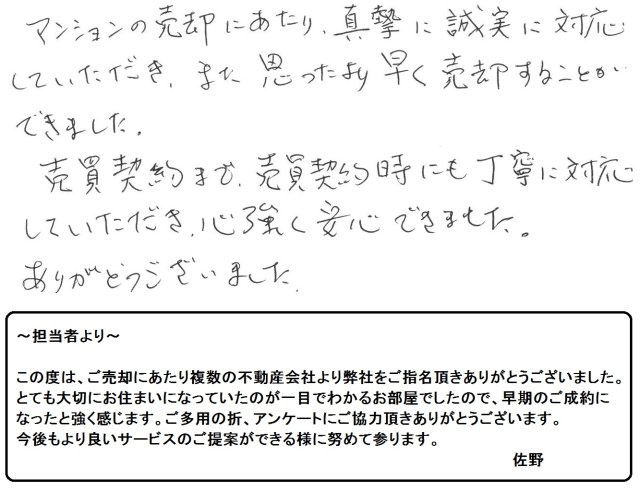 マンションの売却にあたり、真摯に誠実に対応
していただき、また思ったより早く売却することが
できました。
売買契約まで、売買契約時にも丁寧に対応
していただき、心強く安心できました。
ありがとうございました。
～担当者より～
この度は、ご売却にあたり複数の不動産会社より弊社をご指名頂きありがとうございました。
とても大切にお住まいになっていたのが一目でわかるお部屋でしたので、早期のご成約に
なったと強く感じます。ご多用の折、アンケートにご協力頂きありがとうございます。
今後もより良いサービスのご提案ができる様に努めて参ります。
佐野